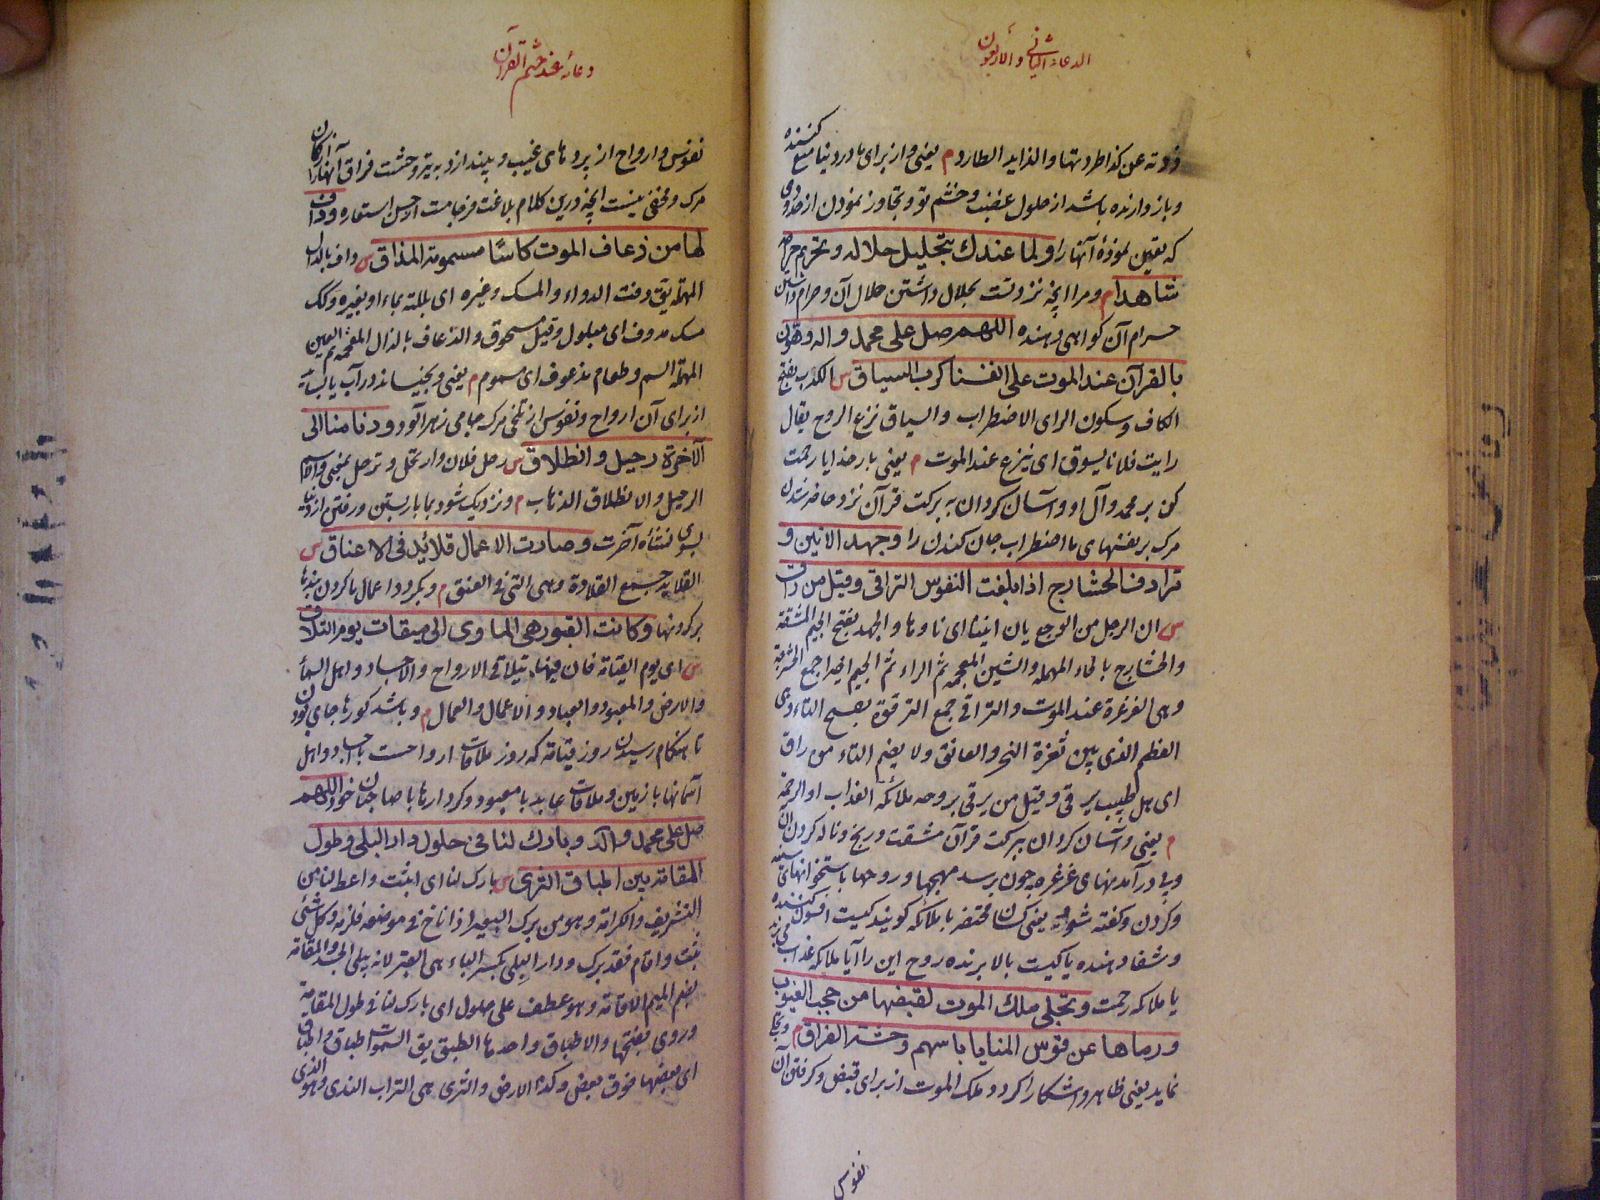 الدعاء الثانی والاربعون
ذدته عن كذا طردتها والذايد الطارد م يعنی و از برای ما در دنیا منع كننده
و باز دارنده باشد از حلول غضب و خشم تو و تجاوز نمودن از حدودی
كه تعیین نموده آنها را ولما عندك بتحليل حلاله وتحريم حرامه
شاهدا م و مر آنچه نزد تست بحلال داشتن حلال آن و حرام داشتن
حرام آن گواهی دهنده اللهم صل على محمد واله وهون
بالقرآن عند الموت على انفسنا كرب السياق س الكرب بفتح
الكاف وسكون الرای الاضطراب والسياق نزع الروح يقال
رايت فلانا يسوق ای ينزع عند الموت م يعنی بار خدایا رحمت
كن بر محمد و آل او و آسان گردان به بركت قرآن نزد حاضر شدن
مرگ بر نفسهای ما اضطراب جان كندن را وجهد الانين و
ترادف الحشارج اذا بلغت النفوس التراقی وقيل من راق
س ان الرجل من الوجع يان انينا ای تاوها والجهد بفتح الجيم المشقة
والحشارج بالحاء المهملة والشين المعجمة ثم الراء ثم الجيم اخيرا جمع الحشرجة
وهی الغرغرة عند الموت والتراقی جمع الترقوة بفتح التاء وهی
العظم الذی بين ثغرة النحر والعاتق ولا يضم التاء من راق
ای هل طبيب يرقی وقيل من يرقی بروحه ملائكة العذاب او الرحمة
م يعنی و آسان گردان ببركت قرآن مشقت و رنج و ناله كردن ان
و پی در آمدنهای غرغره چون برسد مهجها و روحها باستخوانهای سینه
و گردن و گفته شود يعنی كسان محتضر یا ملائكه گویند كیست افسون كننده
و شفا دهنده یا كیست بالا برنده روح این را آیا ملائكه عذاب می برند
یا ملائكه رحمت وتجلى ملك الموت لقبضها من حجب الغيوب
ورماها عن قوس المنايا باسهم وحشة الفراق م و تجلی
نماید یعنی ظاهر و آشكارا گردد ملك الموت از برای قبض و گرفتن آن
نفوس
دعائه عند ختم القرآن
نفوس و ارواح از پرده‌های غیب و بیندازد به تیر وحشت فراق آنها را از كمان
مرگ و مخفی نیست آنچه درین كلام بلاغت فرجامت از حسن استعاره وداف
لها من ذعاف الموت كاسا مسمومة المذاق س داف بالدال
المهملة يق دفت الدواء والمسك وغيره ای بللته بماء او بغيره ومسك
مسك مدووف ای مبلول وقيل مسحوق والذعاف بالذال المعجمة ثم العين
المهملة السم وطعام مذعوف ای مسموم م يعنی و بخیساند در آب یا بساید
از برای آن ارواح و نفوس از تلخی مرگ جامی زهرآلود ودنا منا الى
الآخرة رحيل وانطلاق س رحل فلان وارتحل وترحل بمعنی والاسم
الرحيل والانطلاق الذهاب م و نزدیك شود بما بار بستن و رفتن از دنیا
بسوی نشأه آخرت وصارت الاعمال قلائد فی الاعناق س
القلايد جمع القلادة وهی التی فی العنق م و بگردد اعمال ما گردن بندها
بر گردنها وكانت القبور هی الماوى الى ميقات يوم التلاق
س ای يوم القيامة فان فيها يتلاقی الارواح والاجساد واهل السماء
والارض والمعبود والعباد والاعمال والعمال م و باشد گورها جای بودن
تا هنگام رسیدن روز قیامة كه روز ملاقات ارواحست باجساد و اهل
آسمانها با زمین و ملاقات عابد با معبود و كردارها با صاحبان خود اللهم
صل على محمد واله وبارك لنا فی حلول دار البلى وطول
المقامة بين اطباق الثرى س بارك لنا ای اثبت واعطنا من
التشريف والكرامة وهو من برك البعير اذا ناخ فی موضعه فلزمه وكل شئ
ثبت واقام فقد برك ودار البلی بكسر الباء هی القبر لانه يبلی الجسد والمقامة
بضم الميم الاقامة وهو عطف علی حلول ای بارك لنا فی طول المقامة
وروی بفتحها والاطباق واحدها الطبق يق السموات اطباق واطباق
ای بعضها فوق بعض وكذا الارض والثری هی التراب الندی وهو الذی